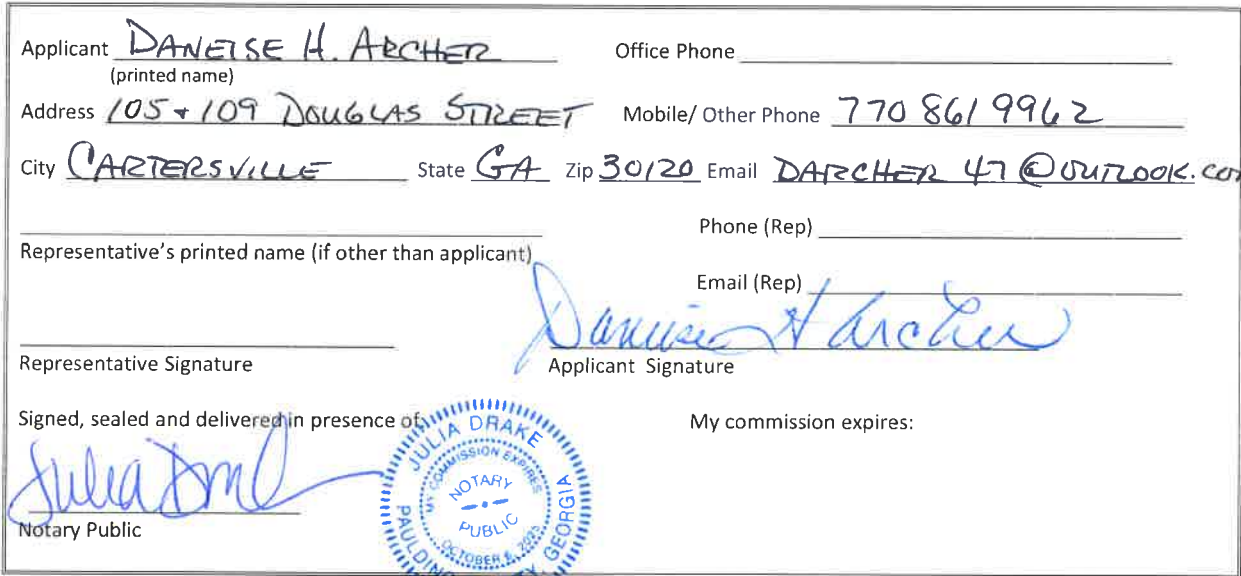 Applicant DANEISE H. ARCHER Office Phone
(printed name)
Address 105 + 109 DOUGLAS STREET Mobile/ Other Phone 770 861 9962
City CARTERSVILLE State GA Zip 30120 Email DARCHER 47 @OUTLOOK.COM
Phone (Rep)
Representative's printed name (if other than applicant)
Email (Rep)
Daneise H Archer
Representative Signature Applicant Signature
Signed, sealed and delivered in presence of: My commission expires:
Julia
Notary Public
JULIA DRAKE
MY COMMISSION EXPIRES
NOTARY
PUBLIC
OCTOBER
GEORGIA